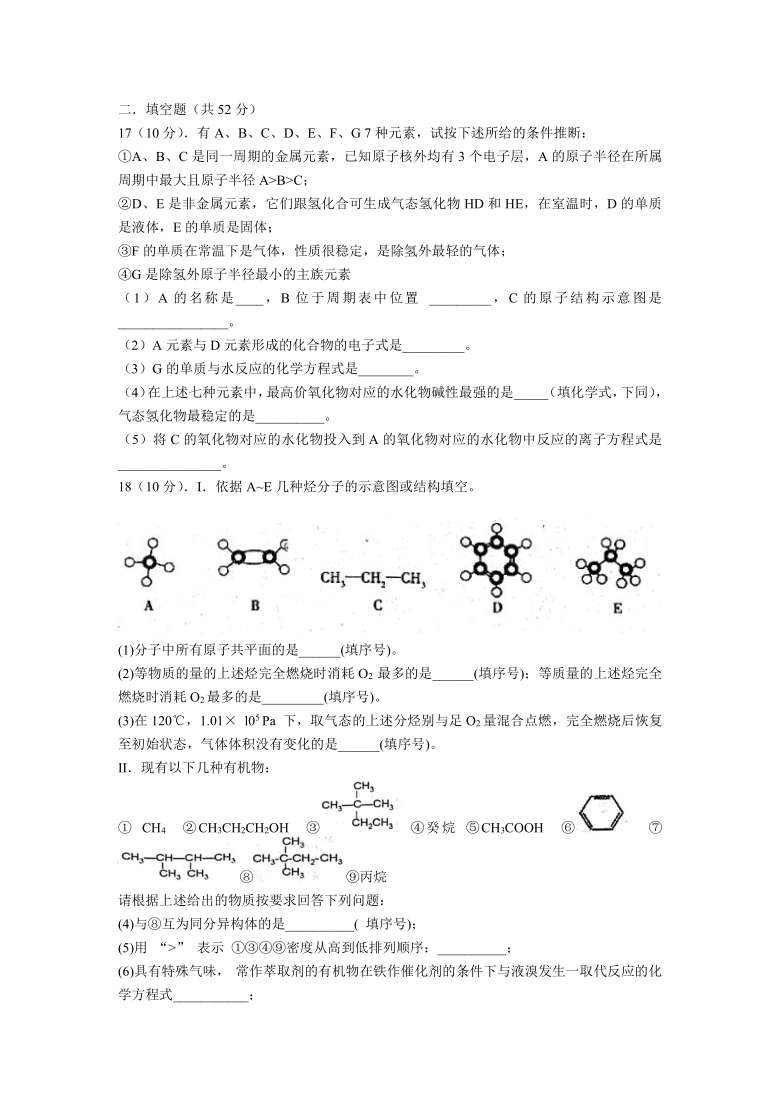 二．填空题（共 52 分）
17（10 分）. 有 A、B、C、D、E、F、G 7 种元素，试按下述所给的条件推断：
①A、B、C 是同一周期的金属元素，已知原子核外均有 3 个电子层，A 的原子半径在所属
周期中最大且原子半径 A>B>C；
②D、E 是非金属元素，它们跟氢化合可生成气态氢化物 HD 和 HE，在室温时，D 的单质
是液体，E 的单质是固体；
③F 的单质在常温下是气体，性质很稳定，是除氢外最轻的气体；
④G 是除氢外原子半径最小的主族元素
（1）A 的名称是____，B 位于周期表中位置 _________，C 的原子结构示意图是
________________。
（2）A 元素与 D 元素形成的化合物的电子式是_________。
（3）G 的单质与水反应的化学方程式是________。
（4）在上述七种元素中，最高价氧化物对应的水化物碱性最强的是_____（填化学式，下同），
气态氢化物最稳定的是__________。
（5）将 C 的氧化物对应的水化物投入到 A 的氧化物对应的水化物中反应的离子方程式是
_______________。
18（10 分）. I．依据 A~E 几种烃分子的示意图或结构填空。
CH3—CH2—CH3
A B C D E
(1)分子中所有原子共平面的是______(填序号)。
(2)等物质的量的上述烃完全燃烧时消耗 O2 最多的是______(填序号)；等质量的上述烃完全
燃烧时消耗 O2 最多的是_________(填序号)。
(3)在 120℃，1.01× 10⁵ Pa 下，取气态的上述分烃别与足 O2 量混合点燃，完全燃烧后恢复
至初始状态，气体体积没有变化的是______(填序号)。
II．现有以下几种有机物：
CH3
CH3—C—CH3
CH2CH3
① CH4 ②CH3CH2CH2OH ③ ④癸烷 ⑤CH3COOH ⑥ ⑦
CH3
CH3—CH—CH—CH3 CH3-C-CH2-CH3
CH3 CH3 CH3
⑧ ⑨丙烷
请根据上述给出的物质按要求回答下列问题：
(4)与⑧互为同分异构体的是__________( 填序号)；
(5)用 “>” 表示 ①③④⑨密度从高到低排列顺序：__________；
(6)具有特殊气味， 常作萃取剂的有机物在铁作催化剂的条件下与液溴发生一取代反应的化
学方程式___________；